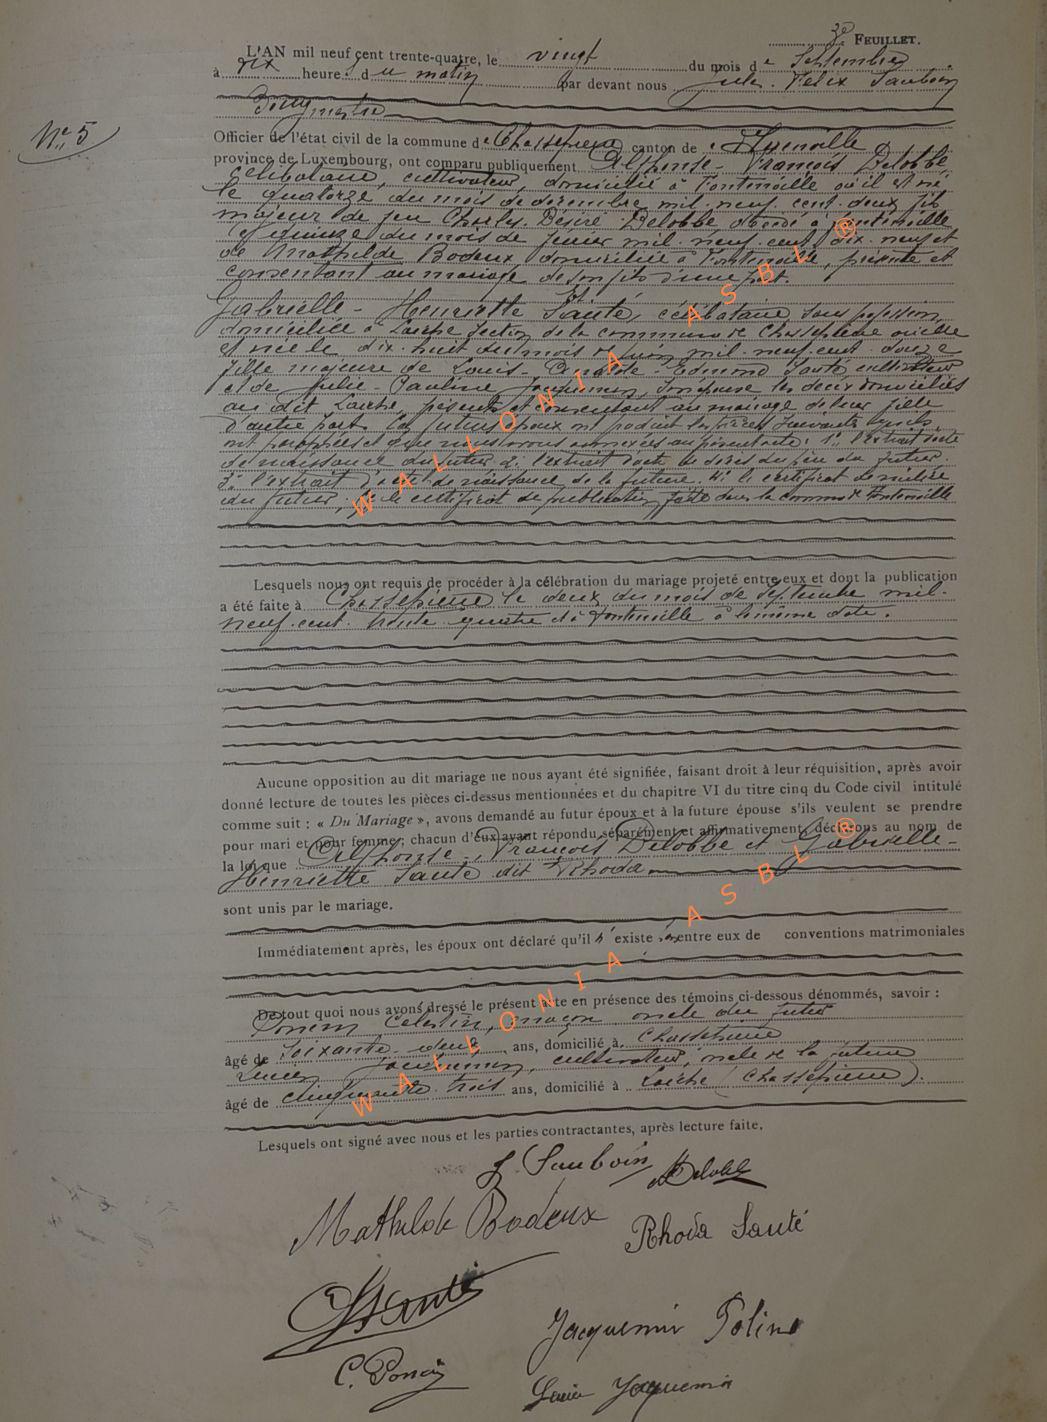 3e FEUILLET.
L'AN mil neuf cent trente-quatre, le vingt du mois de Septembre
à dix heures du matin par devant nous Jules Félix Sauboin
Bourgmestre
N° 5
Officier de l'état civil de la commune de Chassepierre canton de Florenville
province de Luxembourg, ont comparu publiquement Alphonse-François Delobbe,
célibataire, cultivateur, domicilié à Fontenoille où il est né
le quatorze du mois de décembre mil-neuf cent-deux, fils
majeur de feu Charles Désiré Delobbe décédé à Fontenoille
le quinze du mois de février mil-neuf-cent dix-neuf et
de Mathilde Bodeux domiciliée à Fontenoille, présente et
consentant au mariage de son fils d'une part.
Et
Gabrielle-Henriette Santé, célibataire sans profession,
domiciliée à Laiche section de la commune de Chassepierre où elle
est née le dix-huit du mois de mil-neuf-cent-douze
fille majeure de Louis- Edmond Santé cultivateur
et de Julie-Pauline Jacquemin, son épouse les deux domiciliés
au dit Laiche, présents et consentant au mariage de leur fille
d'autre part. Les futurs époux ont produit les pièces suivantes
ont paraphées et que nous avons annexées au présent acte: 1° l'extrait d'acte
de naissance du futur 2° l'extrait d'acte de décès du père du futur.
3° l'extrait d'acte de naissance de la future. 4° le certificat de milice
du futur, 5° le certificat de publication faite dans la commune de Fontenoille
Lesquels nous ont requis de procéder à la célébration du mariage projeté entre eux et dont la publication
a été faite à Chassepierre le deux du mois de Septembre mil-
neuf-cent-trente-quatre et à Fontenoille à la même date.
Aucune opposition au dit mariage ne nous ayant été signifiée, faisant droit à leur réquisition, après avoir
donné lecture de toutes les pièces ci-dessus mentionnées et du chapitre VI du titre cinq du Code civil intitulé
comme suit : « Du Mariage », avons demandé au futur époux et à la future épouse s'ils veulent se prendre
pour mari et pour femme; chacun d'eux ayant répondu séparément et affirmativement, déclarons au nom de
la loi que Alphonse-François Delobbe et Gabrielle-
Henriette Santé dit Rhoda
sont unis par le mariage.
Immédiatement après, les époux ont déclaré qu'il n'existe entre eux de conventions matrimoniales
De tout quoi nous avons dressé le présent acte en présence des témoins ci-dessous dénommés, savoir :
Poncin Célestin, maçon oncle du futur
âgé de soixante-deux ans, domicilié à Chassepierre
Lucien Jacquemin, cultivateur, oncle de la future
âgé de cinquante trois ans, domicilié à Laiche (Chassepierre).
Lesquels ont signé avec nous et les parties contractantes, après lecture faite.
J. Sauboin
Delobbe
Mathilde Bodeux
Rhoda Santé
Santé
Jacquemin Poline
C. Poncin
Jacquemin
WALLONIA ASBL ®
WALLONIA ASBL ®